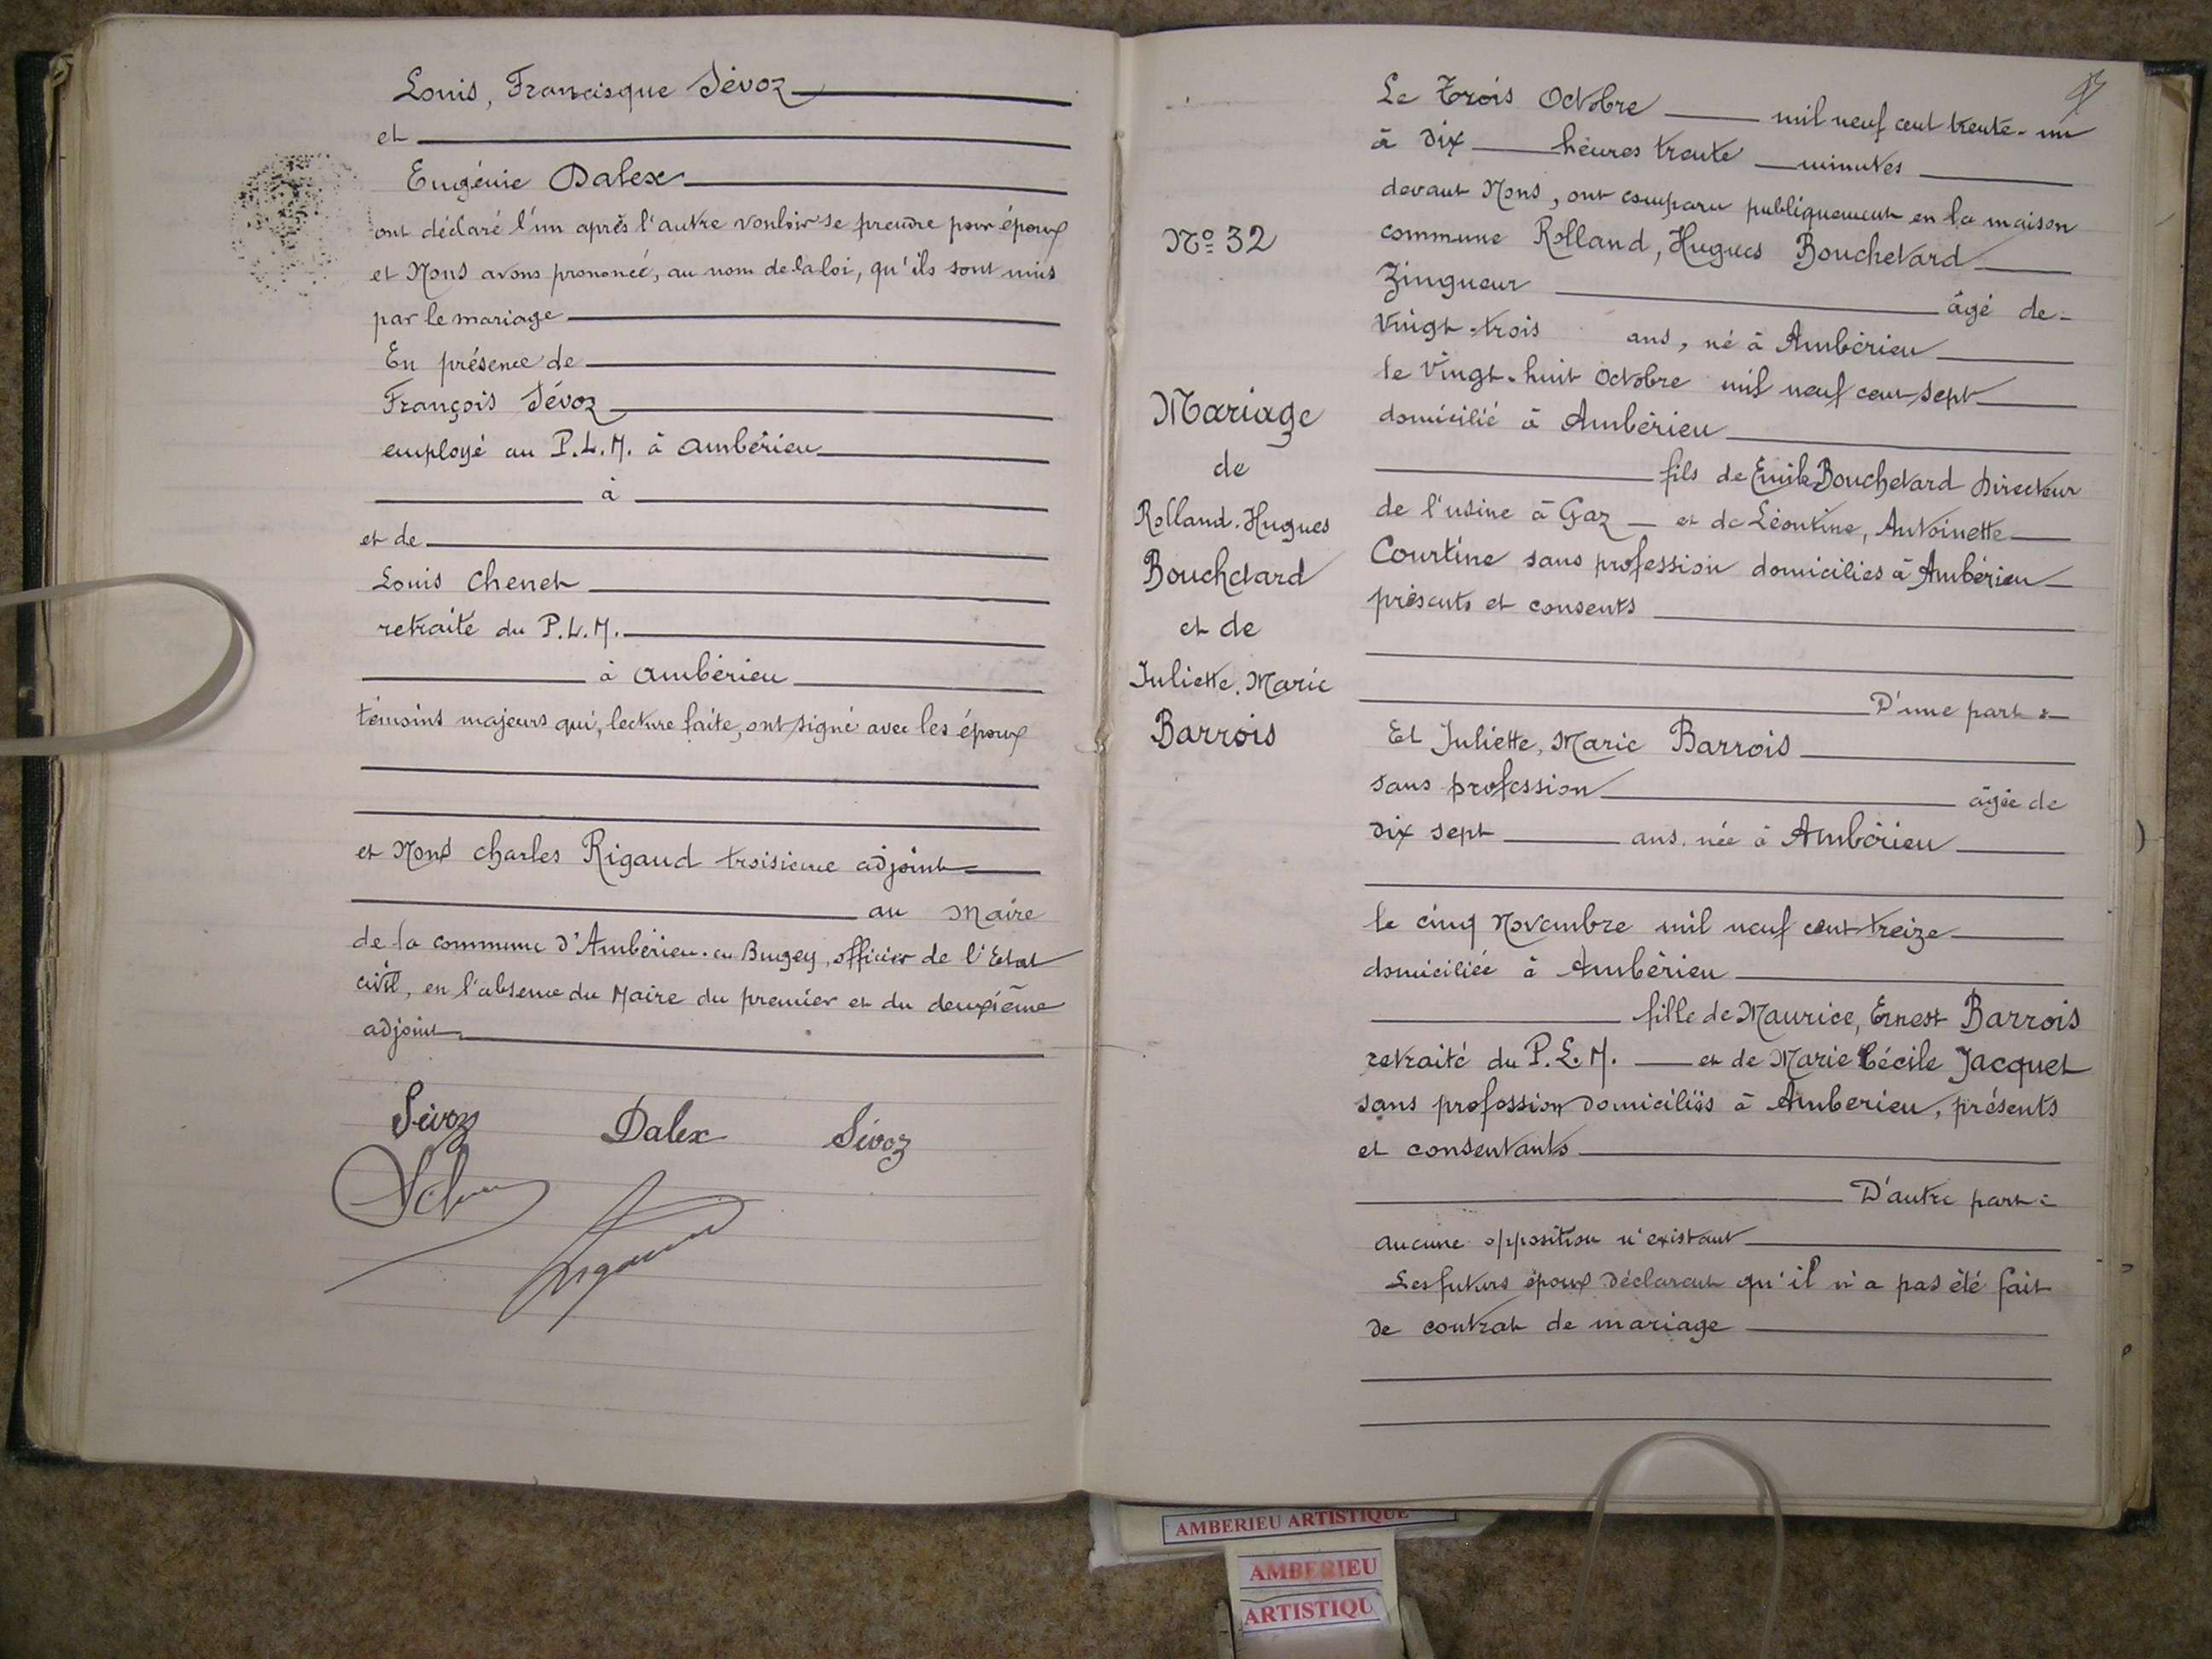 Louis, Francisque Sévoz
et
Eugénie Dalex
ont déclaré l'un après l'autre vouloir se prendre pour époux
et Nous avons prononcé, au nom de la loi, qu'ils sont unis
par le mariage
En présence de
François Sévoz
employé au P.L.M. à Ambérieu
à
et de
Louis Chenet
retraité du P.L.M.
à Ambérieu
témoins majeurs qui, lecture faite, ont signé avec les époux
et Nous Charles Rigaud troisième adjoint
au Maire
de la commune d'Ambérieu-en Bugey, officier de l'Etat
civil, en l'absence du Maire du premier et du deuxième
adjoint
Sévoz Dalex Sévoz
N° 32
Mariage
de
Rolland-Hugues
Bouchetard
et de
Juliette, Marie
Barrois
Le Trois Octobre mil neuf cent trente-un
à dix heures trente minutes
devant Nous, ont comparu publiquement en la maison
commune Rolland, Hugues Bouchetard
Zingueur âgé de
Vingt-trois ans, né à Ambérieu
le Vingt-huit Octobre mil neuf cent sept
domicilié à Ambérieu
fils de Emile Bouchetard Directeur
de l'usine à Gaz et de Léontine, Antoinette
Courtine sans profession domiciliés à Ambérieu
présents et consents
D'une part
Et Juliette, Marie Barrois
sans profession âgée de
dix sept ans, née à Ambérieu
le cinq Novembre mil neuf cent treize
domiciliée à Ambérieu
fille de Maurice, Ernest Barrois
retraité du P.L.M. et de Marie Cécile Jacquet
sans profession domiciliés à Amberieu, présents
et consentants
D'autre part
aucune opposition n'existant
Les futurs époux déclarent qu'il n'a pas été fait
de contrat de mariage
AMBERIEU ARTISTIQUE
AMBERIEU
ARTISTIQU